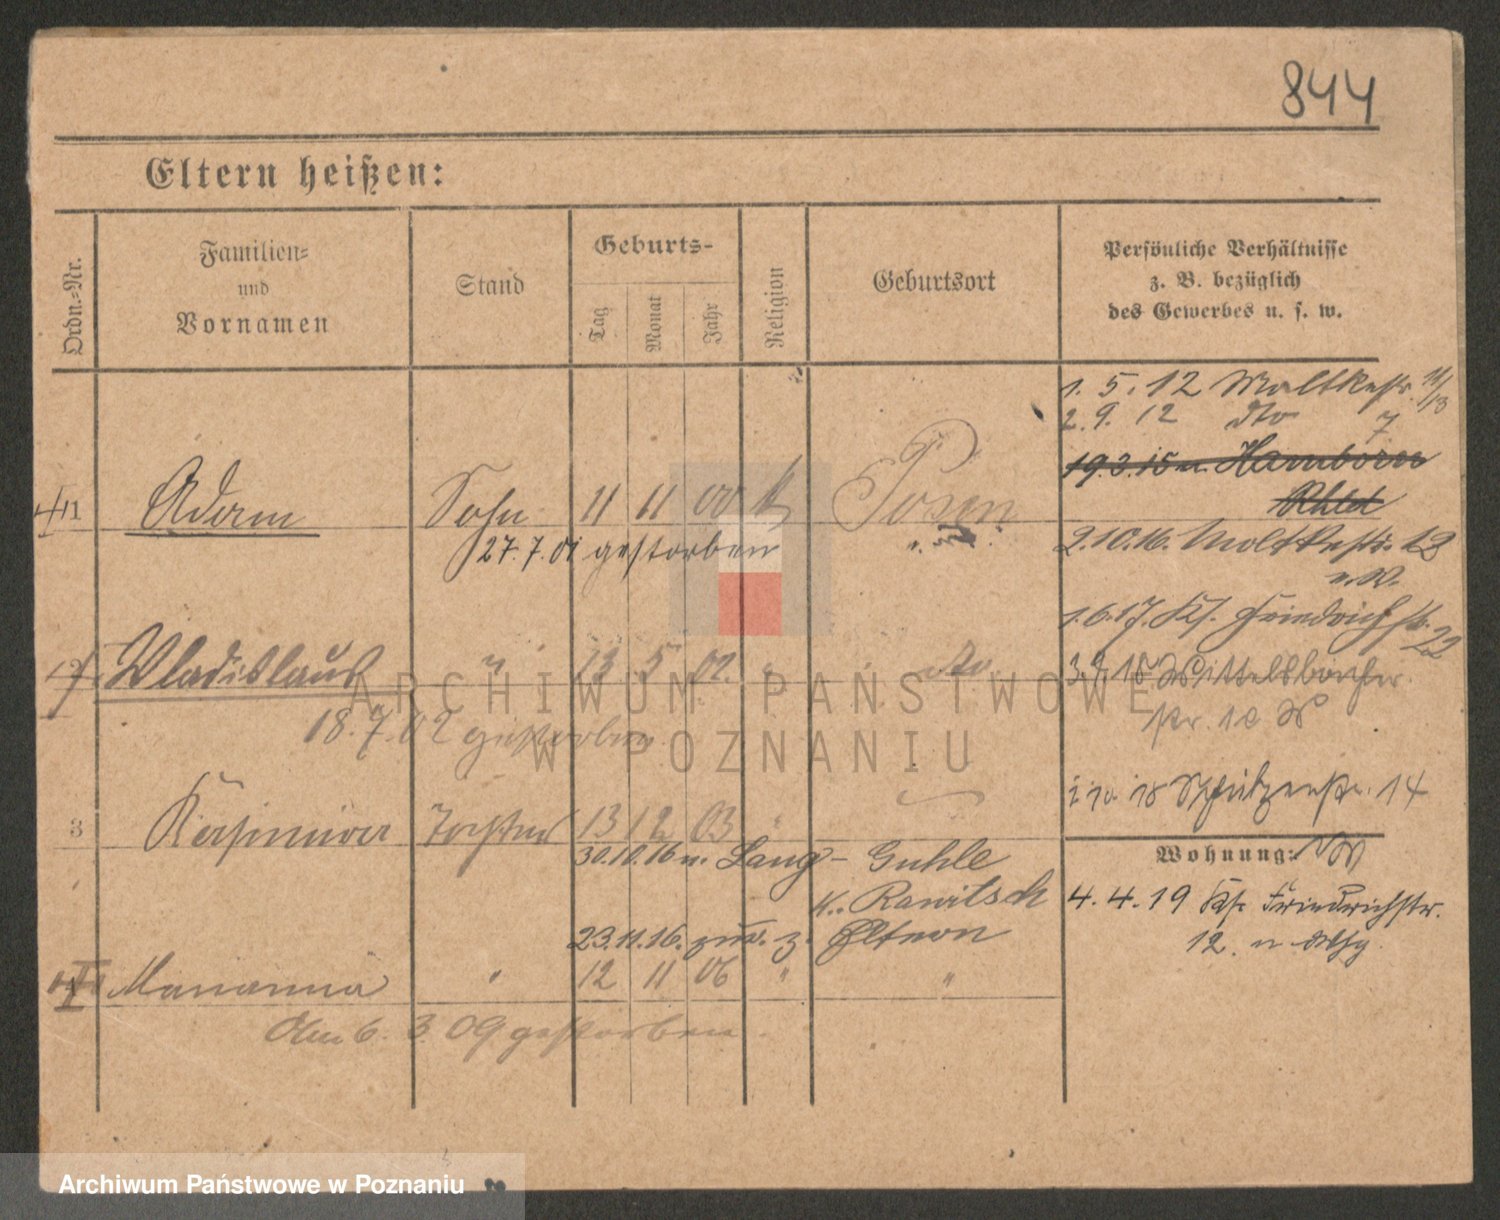 844
Eltern heißen:
Ordn.-Nr.
Familien-
und
Vornamen
Stand
Geburts-
Tag
Monat
Jahr
Religion
Geburtsort
Persönliche Verhältnisse
z. B. bezüglich
des Gewerbes u. s. w.
1. 5. 12 Moltkestr.
2. 9. 12 dto 7
19.3.15 n. Hamborn
Rhld
1 Adam Sohn 11 11 00 k Posen
27.7.01 gestorben
2.10.16. Moltkestr. 13
1.6.17. Ks. Friedrichstr. 22
2 Wladislaus " 13 5 02. " dto
18.7.02 gestorben
3.9.18 Wittelsbacher
str. 10 W
18 Schützenstr. 14
3 Kasimira Tochter 13 12 03 "
Wohnung:
30.10.16 n. Lang-Guhle
K. Rawitsch
4.4.19 Ks. Friedrichstr.
12.
23.11.16. zur. z. Eltern
4 Marianna " 12 11 06 " "
Am 6. 3. 09 gestorben.
ARCHIWUM PAŃSTWOWE
W POZNANIU
Archiwum Państwowe w Poznaniu